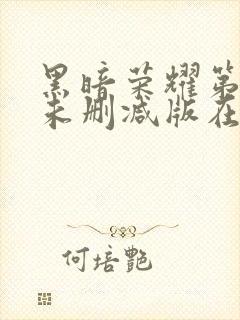 黑暗荣耀第
未删减版在
何培艷